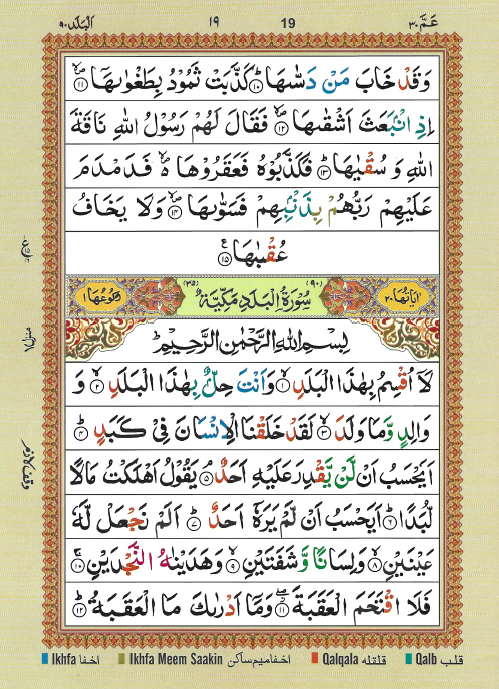 عَمَّ ٣٠ 19 ١٩ اَلْبَلَد ٩٠
وَقَدْ خَابَ مَنْ دَسّٰىهَا ۙ ١٠ كَذَّبَتْ ثَمُوْدُ بِطَغْوٰىهَاۤ ۙ ١١
اِذِ انْۢبَعَثَ اَشْقٰىهَا ۙ ١٢ فَقَالَ لَهُمْ رَسُوْلُ اللّٰهِ نَاقَةَ
اللّٰهِ وَ سُقْيٰهَا ؕ ١٣ فَكَذَّبُوْهُ فَعَقَرُوْهَا ۪ۙ فَدَمْدَمَ
عَلَيْهِمْ رَبُّهُمْ بِذَنْۢبِهِمْ فَسَوّٰىهَا ۙ ١٤ وَلَا يَخَافُ
عُقْبٰهَا ١٥
اٰيَاتُهَا ٢٠ (٩٠) سُوْرَةُ الْبَلَدِ مَكِّيَّةٌ (٣٥) رُكُوْعُهَا ١
بِسْمِ اللّٰهِ الرَّحْمٰنِ الرَّحِيْمِ
لَاۤ اُقْسِمُ بِهٰذَا الْبَلَدِ ۙ ١ وَاَنْتَ حِلٌّۢ بِهٰذَا الْبَلَدِ ۙ ٢ وَ
وَالِدٍ وَّمَا وَلَدَ ۙ ٣ لَقَدْ خَلَقْنَا الْاِنْسَانَ فِيْ كَبَدٍ ؕ ٤
اَيَحْسَبُ اَنْ لَّنْ يَّقْدِرَ عَلَيْهِ اَحَدٌ ۘ ٥ يَقُوْلُ اَهْلَكْتُ مَالًا
لُّبَدًا ؕ ٦ اَيَحْسَبُ اَنْ لَّمْ يَرَهٗۤ اَحَدٌ ؕ ٧ اَلَمْ نَجْعَلْ لَّهٗ
عَيْنَيْنِ ۙ ٨ وَلِسَانًا وَّ شَفَتَيْنِ ۙ ٩ وَهَدَيْنٰهُ النَّجْدَيْنِ ۚ ١٠
فَلَا اقْتَحَمَ الْعَقَبَةَ ۖ ١١ وَمَاۤ اَدْرٰىكَ مَا الْعَقَبَةُ ؕ ١٢
Ikhfa اخفا Ikhfa Meem Saakin اخفا میم ساکن Qalqala قلقله Qalb قلب